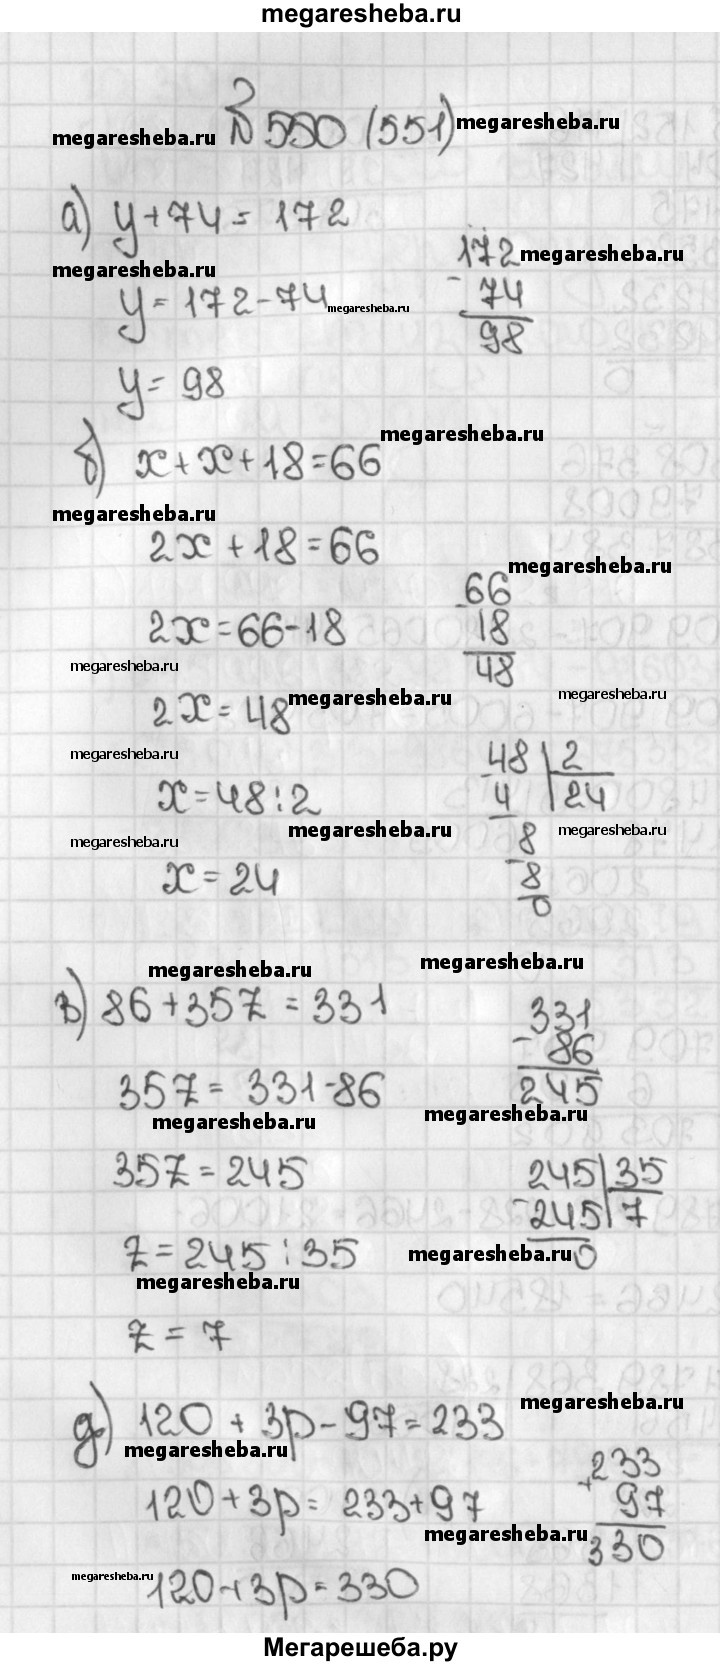 megaresheba.ru
№ 550 (551)
megaresheba.ru
megaresheba.ru
а) y+74= 172
megaresheba.ru
172
- 74
98
megaresheba.ru
y= 172-74
megaresheba.ru
y= 98
megaresheba.ru
б) x+x+18=66
megaresheba.ru
2x+18=66
megaresheba.ru
2x=66-18
66
- 18
48
megaresheba.ru
megaresheba.ru
2x=48
megaresheba.ru
megaresheba.ru
x=48:2
48 | 2
- 4 | 24
- 8
8
0
megaresheba.ru
megaresheba.ru
megaresheba.ru
x=24
megaresheba.ru
megaresheba.ru
в) 86+35z = 331
331
- 86
245
35z= 331-86
megaresheba.ru
megaresheba.ru
35z=245
245 | 35
- 245 | 7
0
z=245:35
megaresheba.ru
megaresheba.ru
z = 7
megaresheba.ru
д) 120 + 3p-97=233
megaresheba.ru
233
+ 97
330
120+3p= 233+97
megaresheba.ru
megaresheba.ru
120+3p=330
Мегарешеба.ру